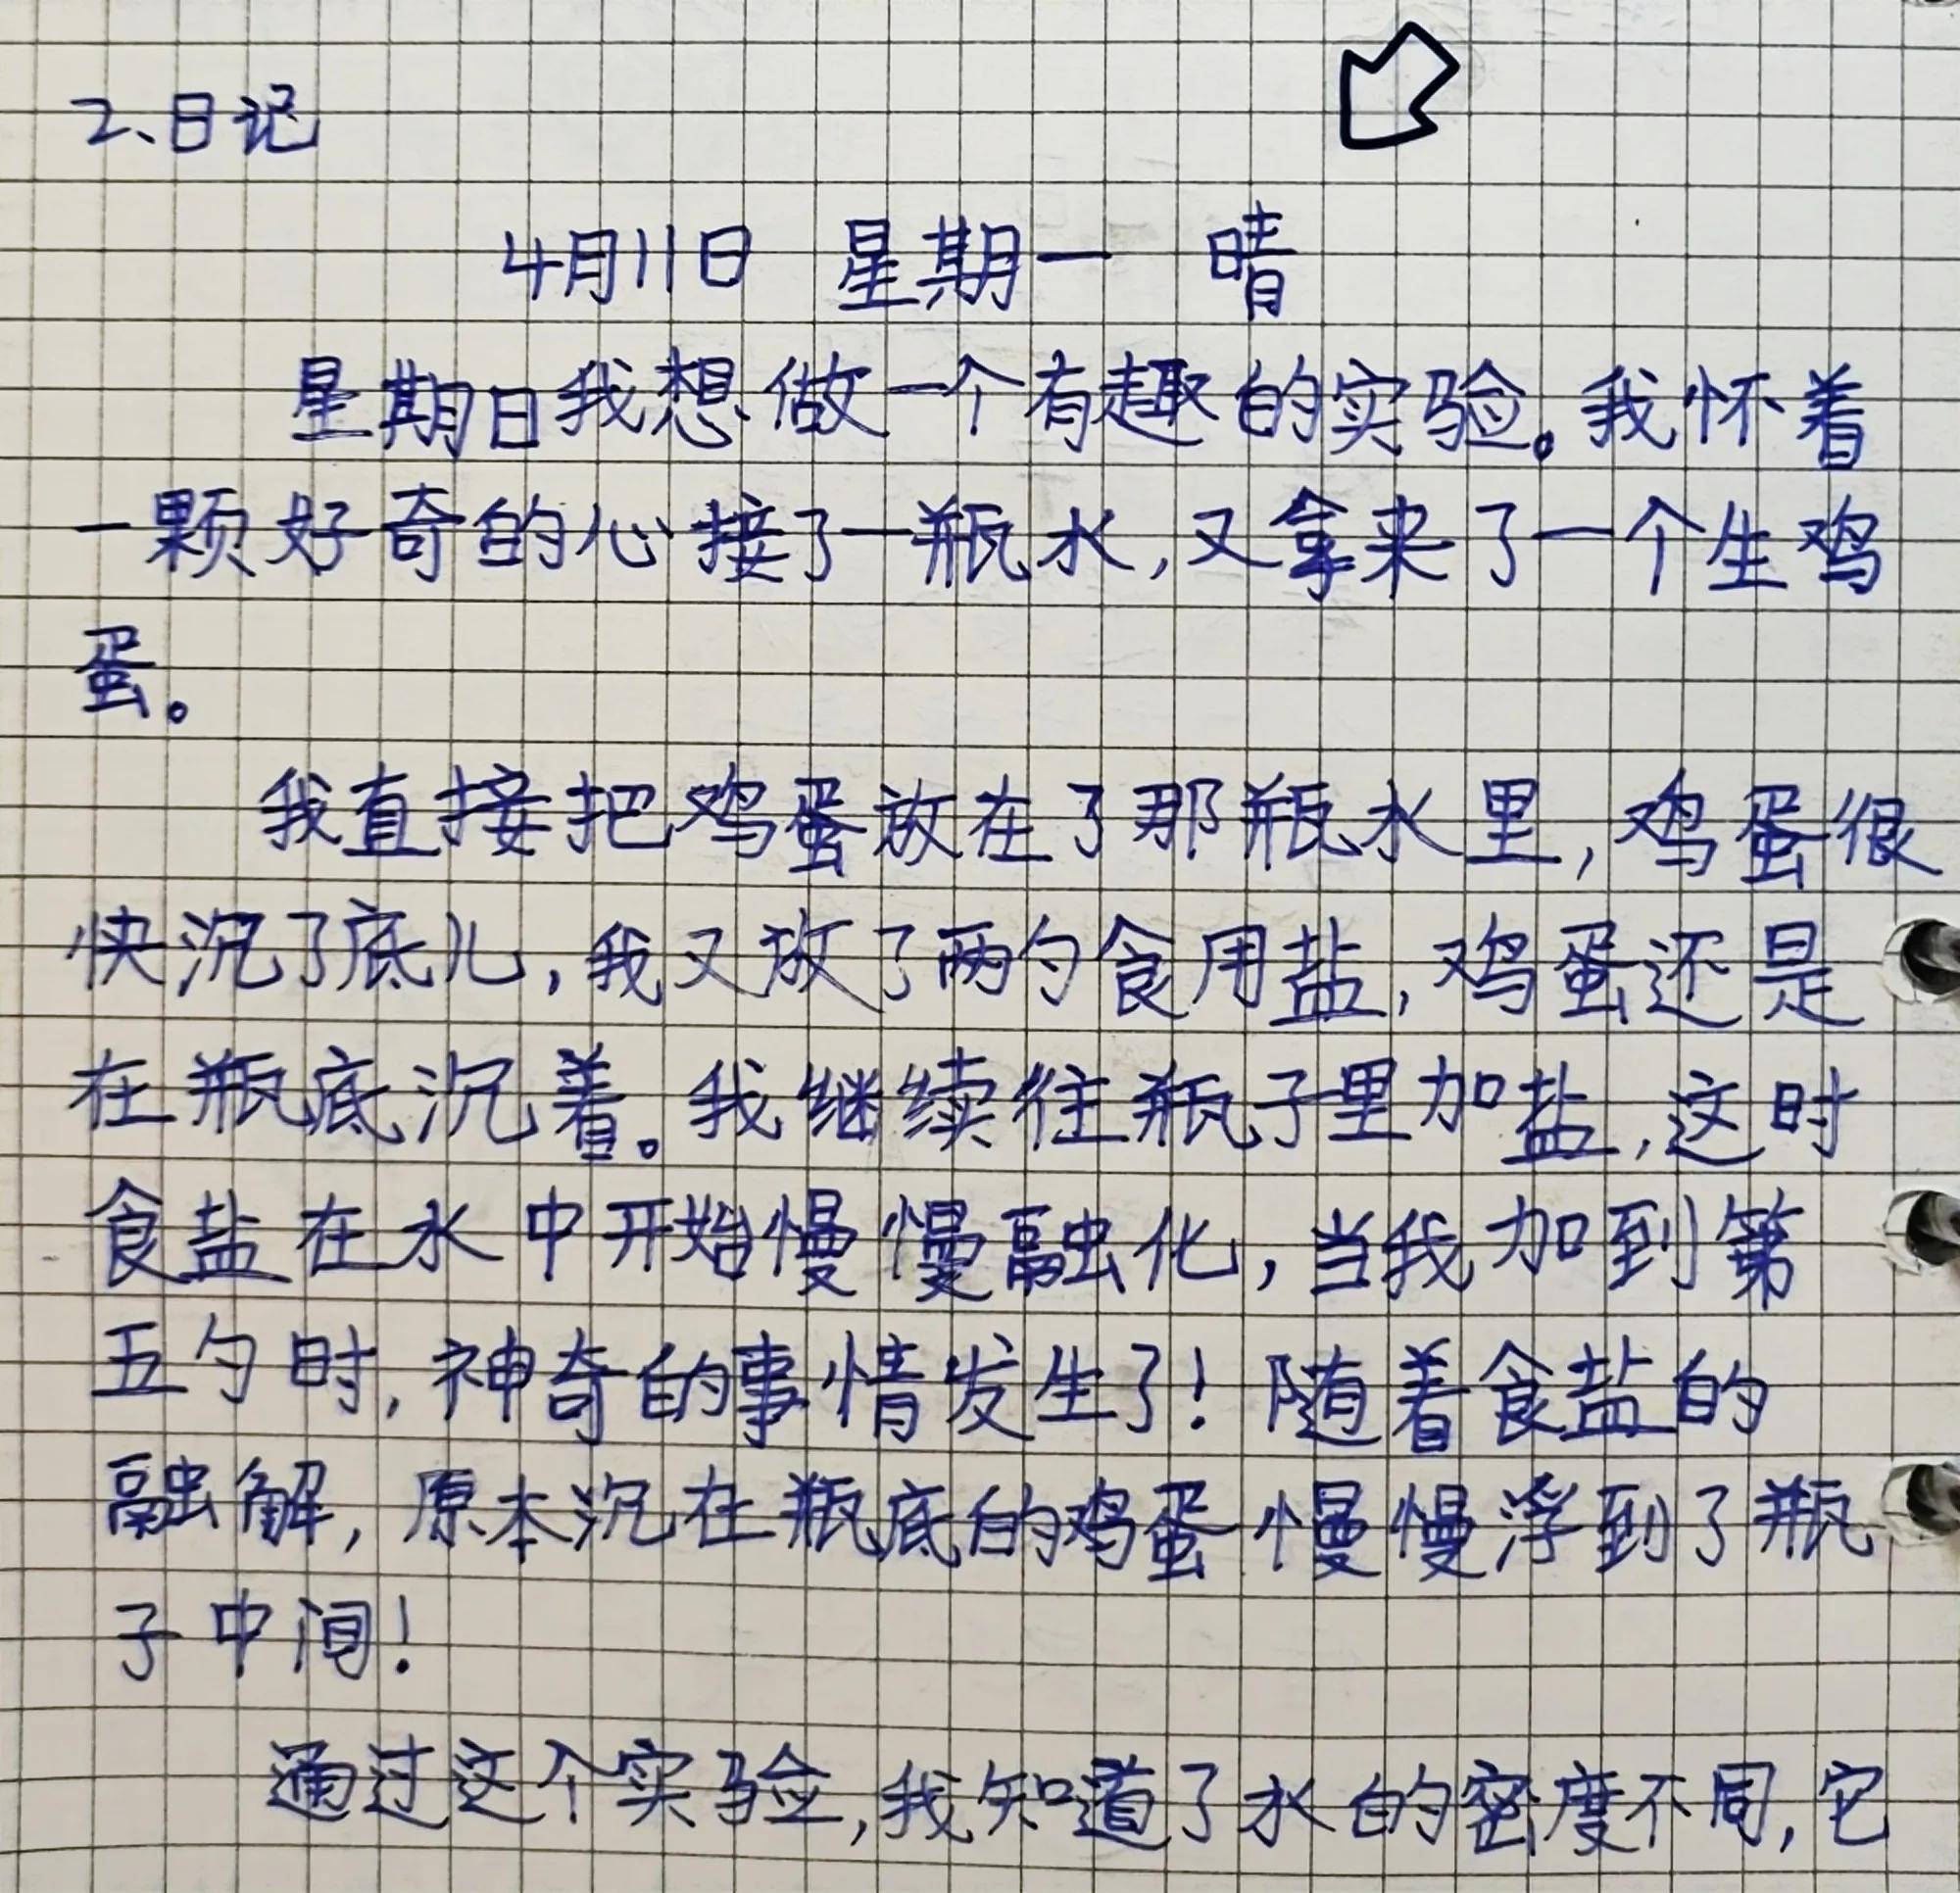 2、日记
4月11日 星期一 晴
星期日我想做一个有趣的实验。我怀着
一颗好奇的心接了一瓶水,又拿来了一个生鸡
蛋。
我直接把鸡蛋放在了那瓶水里,鸡蛋很
快沉了底儿,我又放了两勺食用盐,鸡蛋还是
在瓶底沉着。我继续往瓶子里加盐,这时
食盐在水中开始慢慢融化,当我加到第
五勺时,神奇的事情发生了!随着食盐的
融解,原本沉在瓶底的鸡蛋慢慢浮到了瓶
子中间!
通过这个实验,我知道了水的密度不同,它